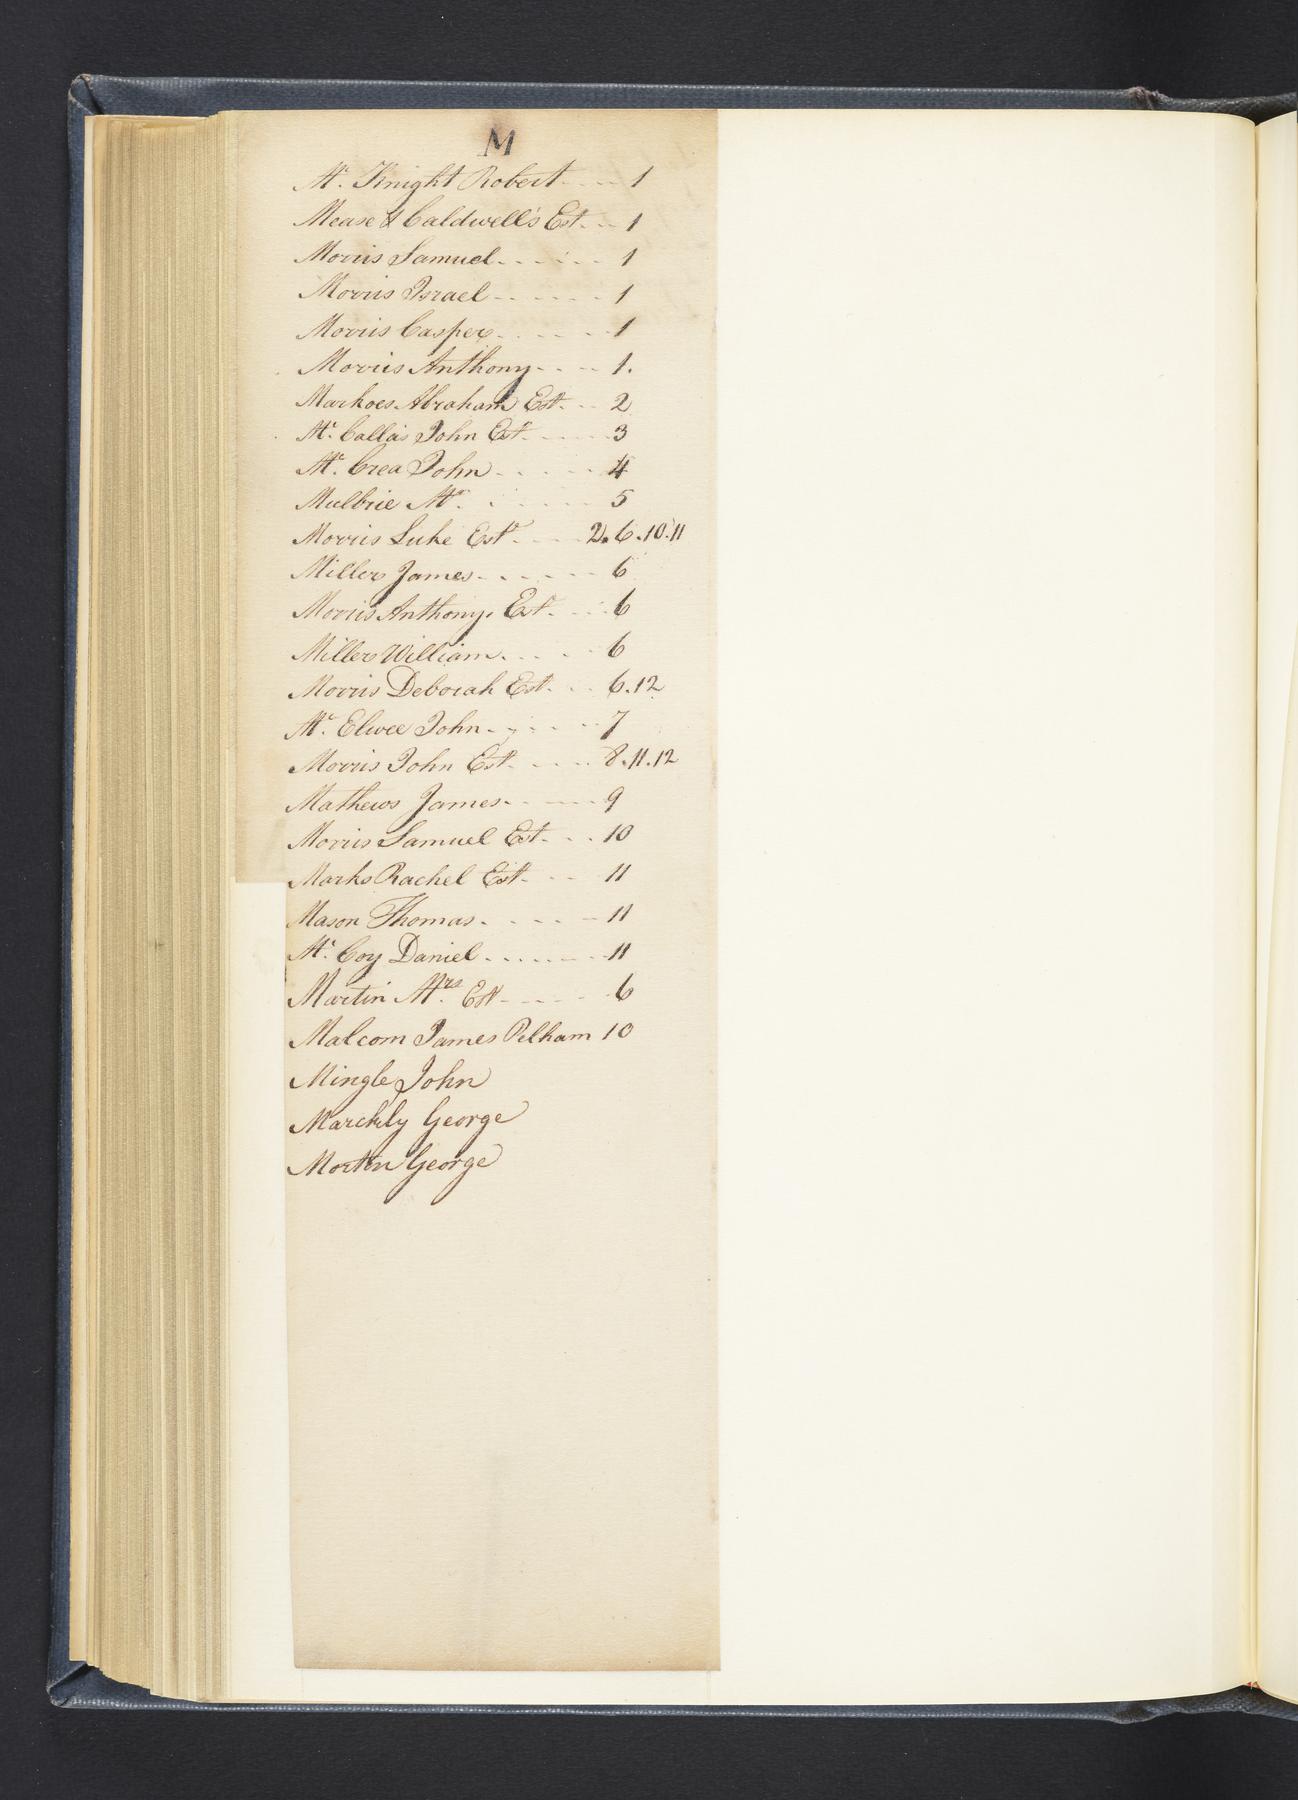 M
Mc. Knight Robert - - - 1
Mease & Caldwell's Est. - - 1
Morris Samuel - - - - - 1
Morris Israel - - - - - 1
Morris Casper - - - - - 1
Morris Anthony - - - - 1.
Markoes Abraham Est. - - 2
Mc. Calla's John Est. - - - - 3
Mc. Crea John - - - - - 4
Mulbrie Mr. - - - - - 5
Morris Luke Est. - - - 2.6.10.11
Miller James - - - - - - 6
Morris Anthony. Est. - - - 6
Miller William. - - - - 6
Morris Deborah Est. - - 6.12
Mc. Elwee John - - - - - 7
Morris John Est. - - - - 8.11.12
Mathews James - - - - 9
Morris Samuel Est. - - . 10
Marks Rachel Est. - - - 11
Mason Thomas. - - - - - 11
Mc. Coy Daniel - - - - - - 11
Martin Mrs. Est - - - - - 6
Malcom James Pelham 10
Mingle John
Marckly George
Morten George